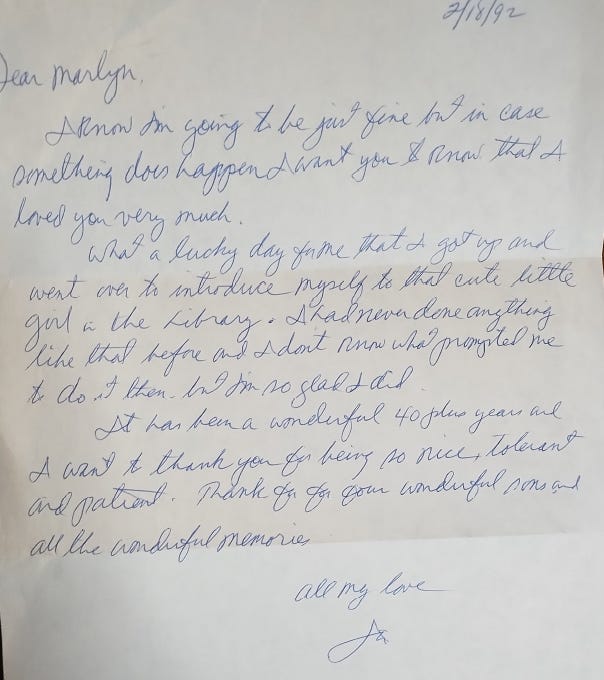 2/18/92
Dear Marlyn,
I know I'm going to be just fine but in case
something does happen I want you to know that I
loved you very much.
What a lucky day for me that I got up and
went over to introduce myself to that cute little
girl in the Library. I had never done anything
like that before and I don't know what prompted me
to do it then. but I'm so glad I did.
It has been a wonderful 40 plus years and
I want to thank you for being so nice, tolerant
and patient. Thank for four wonderful sons and
all the wonderful memories
all my love